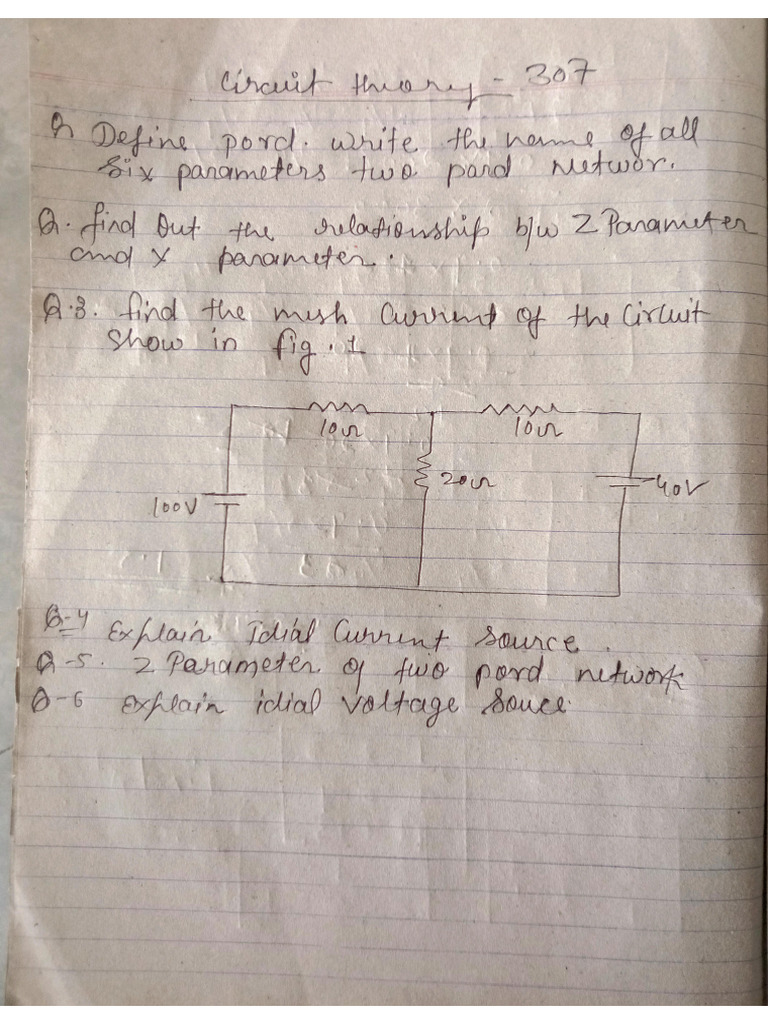 Circuit theory - 307
Q Define pord. write the name of all
six parameters two pord networ.
Q. find out the relationship b/w Z Parameter
and Y parameter.
Q.3. find the mesh current of the circuit
show in fig. 1
10Ω 10Ω
20Ω
100V 40V
Q-4 Explain Idial Current source.
Q-5. Z Parameter of two pord network
Q-6 explain idial voltage souce.